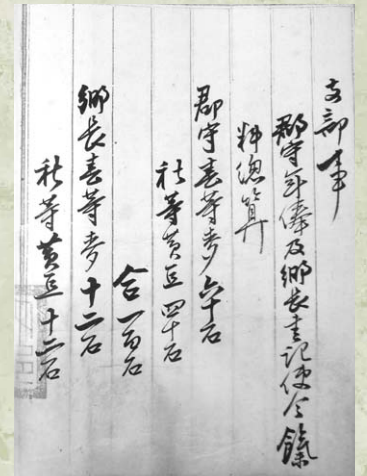 支部
郡守年俸及鄕長書記使令餼
料總算
郡守春等麥六十石
秋等黃豆四十石
合一百石
鄕長春等麥十二石
秋等黃豆十二石